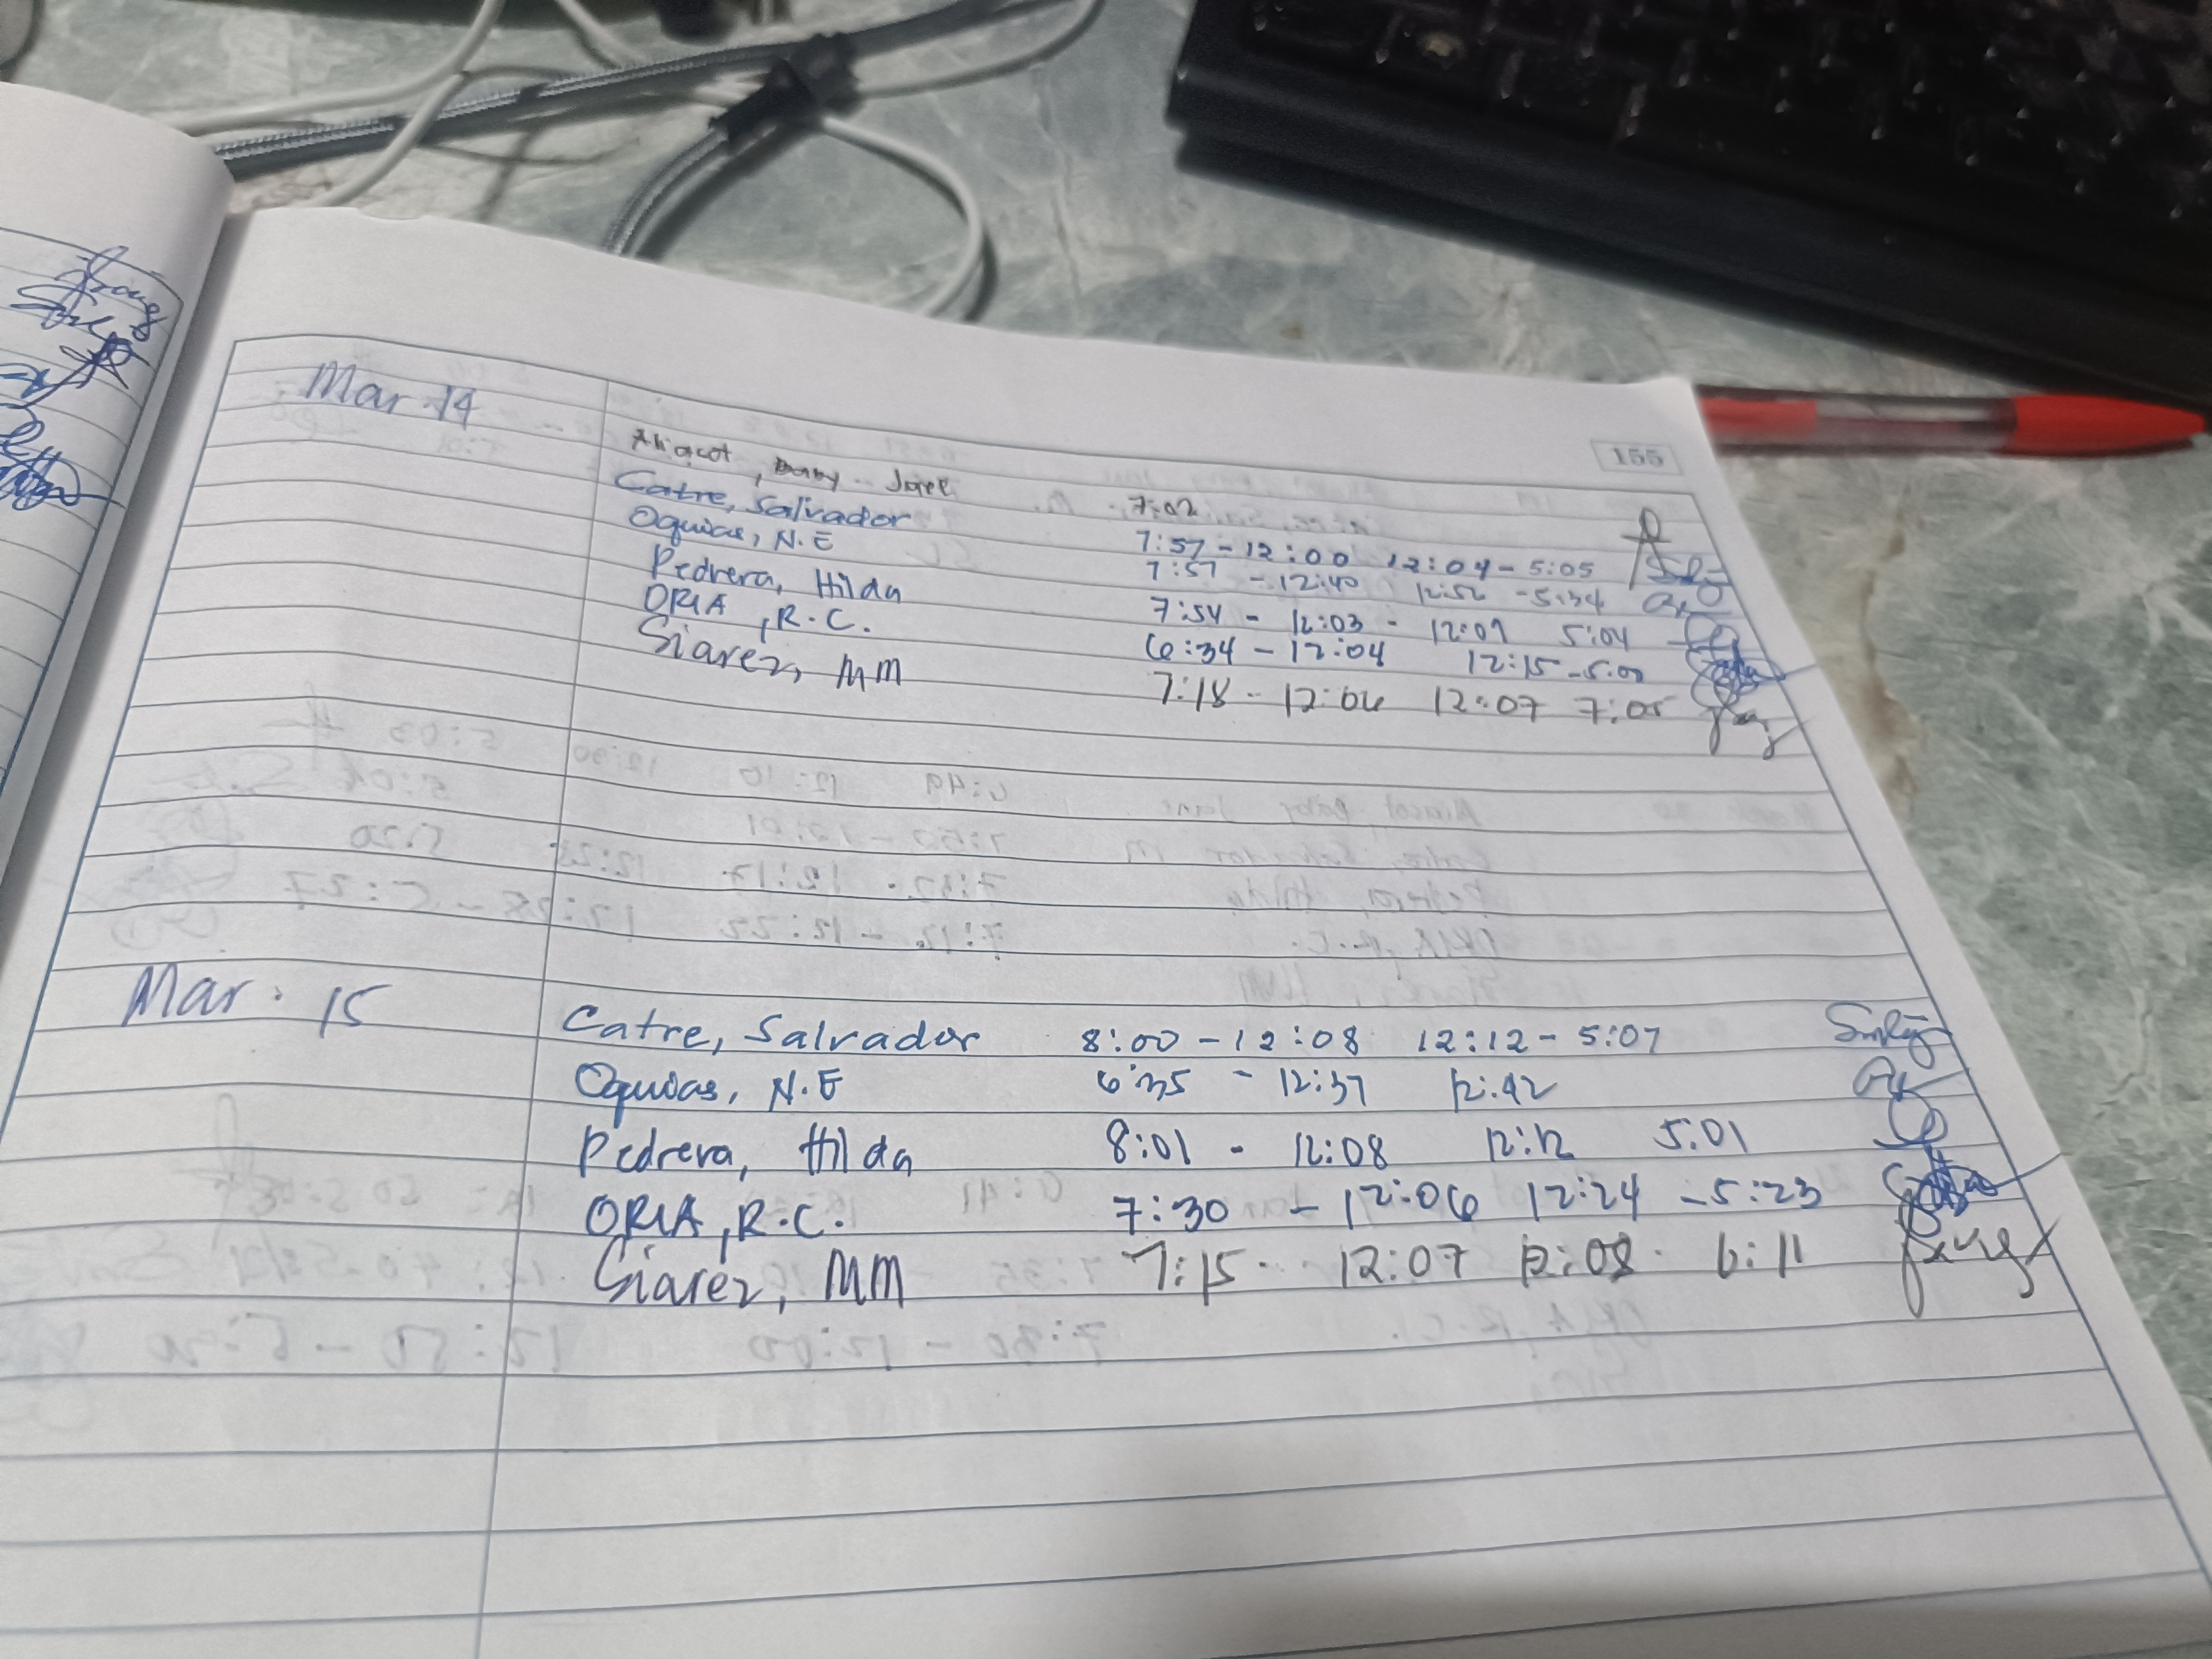 155
Mar 14
Aliacot, Baby Jane 7:02
Catre, Salvador 7:57 - 12:00 12:04 - 5:05
Oquias, N.E 7:57 - 12:40 12:52 - 5:34
Pedrera, Hilda 7:54 - 12:03 - 12:09 5:04
ORIA, R.C. 6:34 - 12:04 12:15 - 5:00
Siarez, MM 7:18 - 12:06 12:07 7:05
Mar. 15
Catre, Salvador 8:00 - 12:08 12:12 - 5:07
Oquias, N.E 6:35 - 12:37 12:42
Pedrera, Hilda 8:01 - 12:08 12:12 5:01
ORIA, R.C. 7:30 - 12:06 12:24 - 5:23
Siarez, MM 7:15 - 12:07 12:08 - 6:11